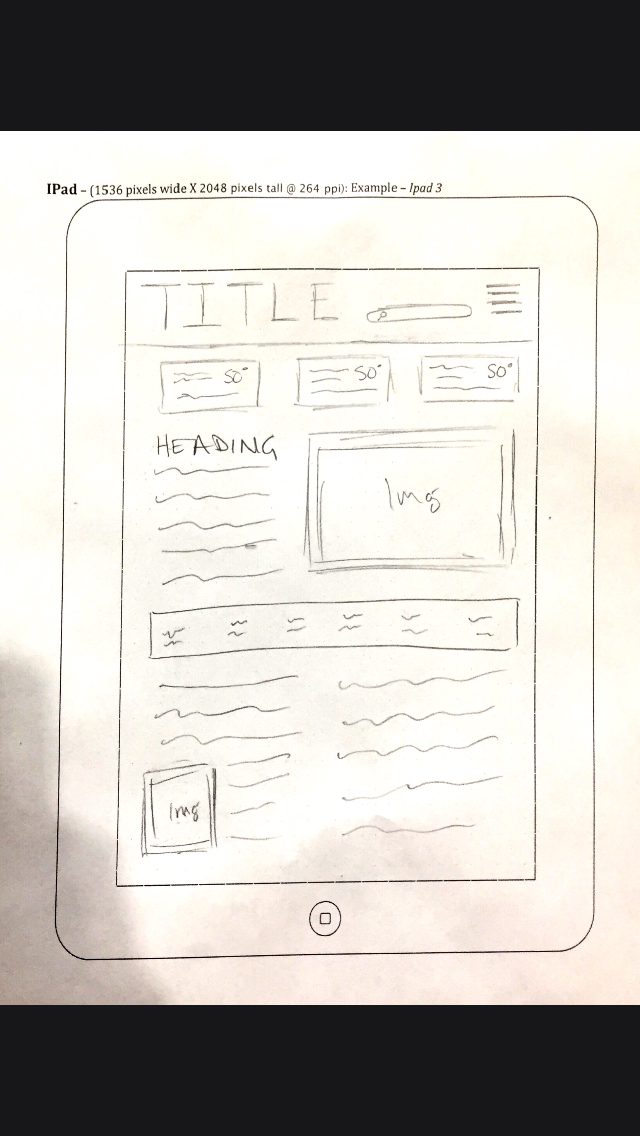 IPad – (1536 pixels wide X 2048 pixels tall @ 264 ppi): Example – Ipad 3
TITLE
50° 50° 50°
HEADING
Img
Img